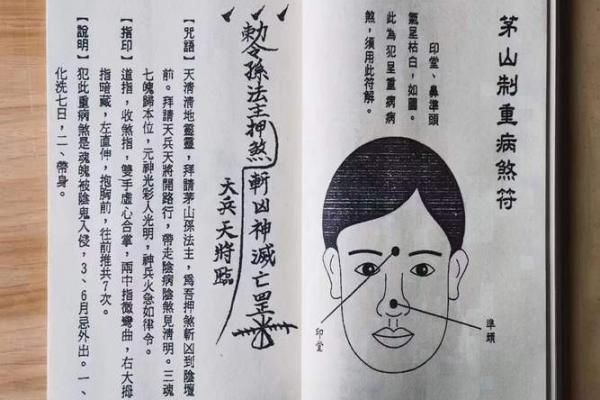 茅山制重病煞符
印堂、鼻準頭
氣呈枯白，如圖。
此為犯呈重病病
煞，須用此符解。
印堂
準頭
勅令孫法主押煞斬凶神滅亡罡
天兵天將臨
【咒語】天清清地靈靈，拜請茅山孫法主，為吾押煞斬凶到陰壇
前。拜請天兵天將開路行，帶走陰病陰煞見清明。三魂
七魄歸本位，元神光彩人光明，神兵火急如律令。
【指印】道指，收煞指，雙手虛心合掌，兩中指微彎曲，右大拇
指暗藏，左直伸，抱胸前，往前推共7次。
【說明】犯此重病煞是魂魄被陰鬼入侵，3、6月忌外出。一、
化洗七日，二、帶身。